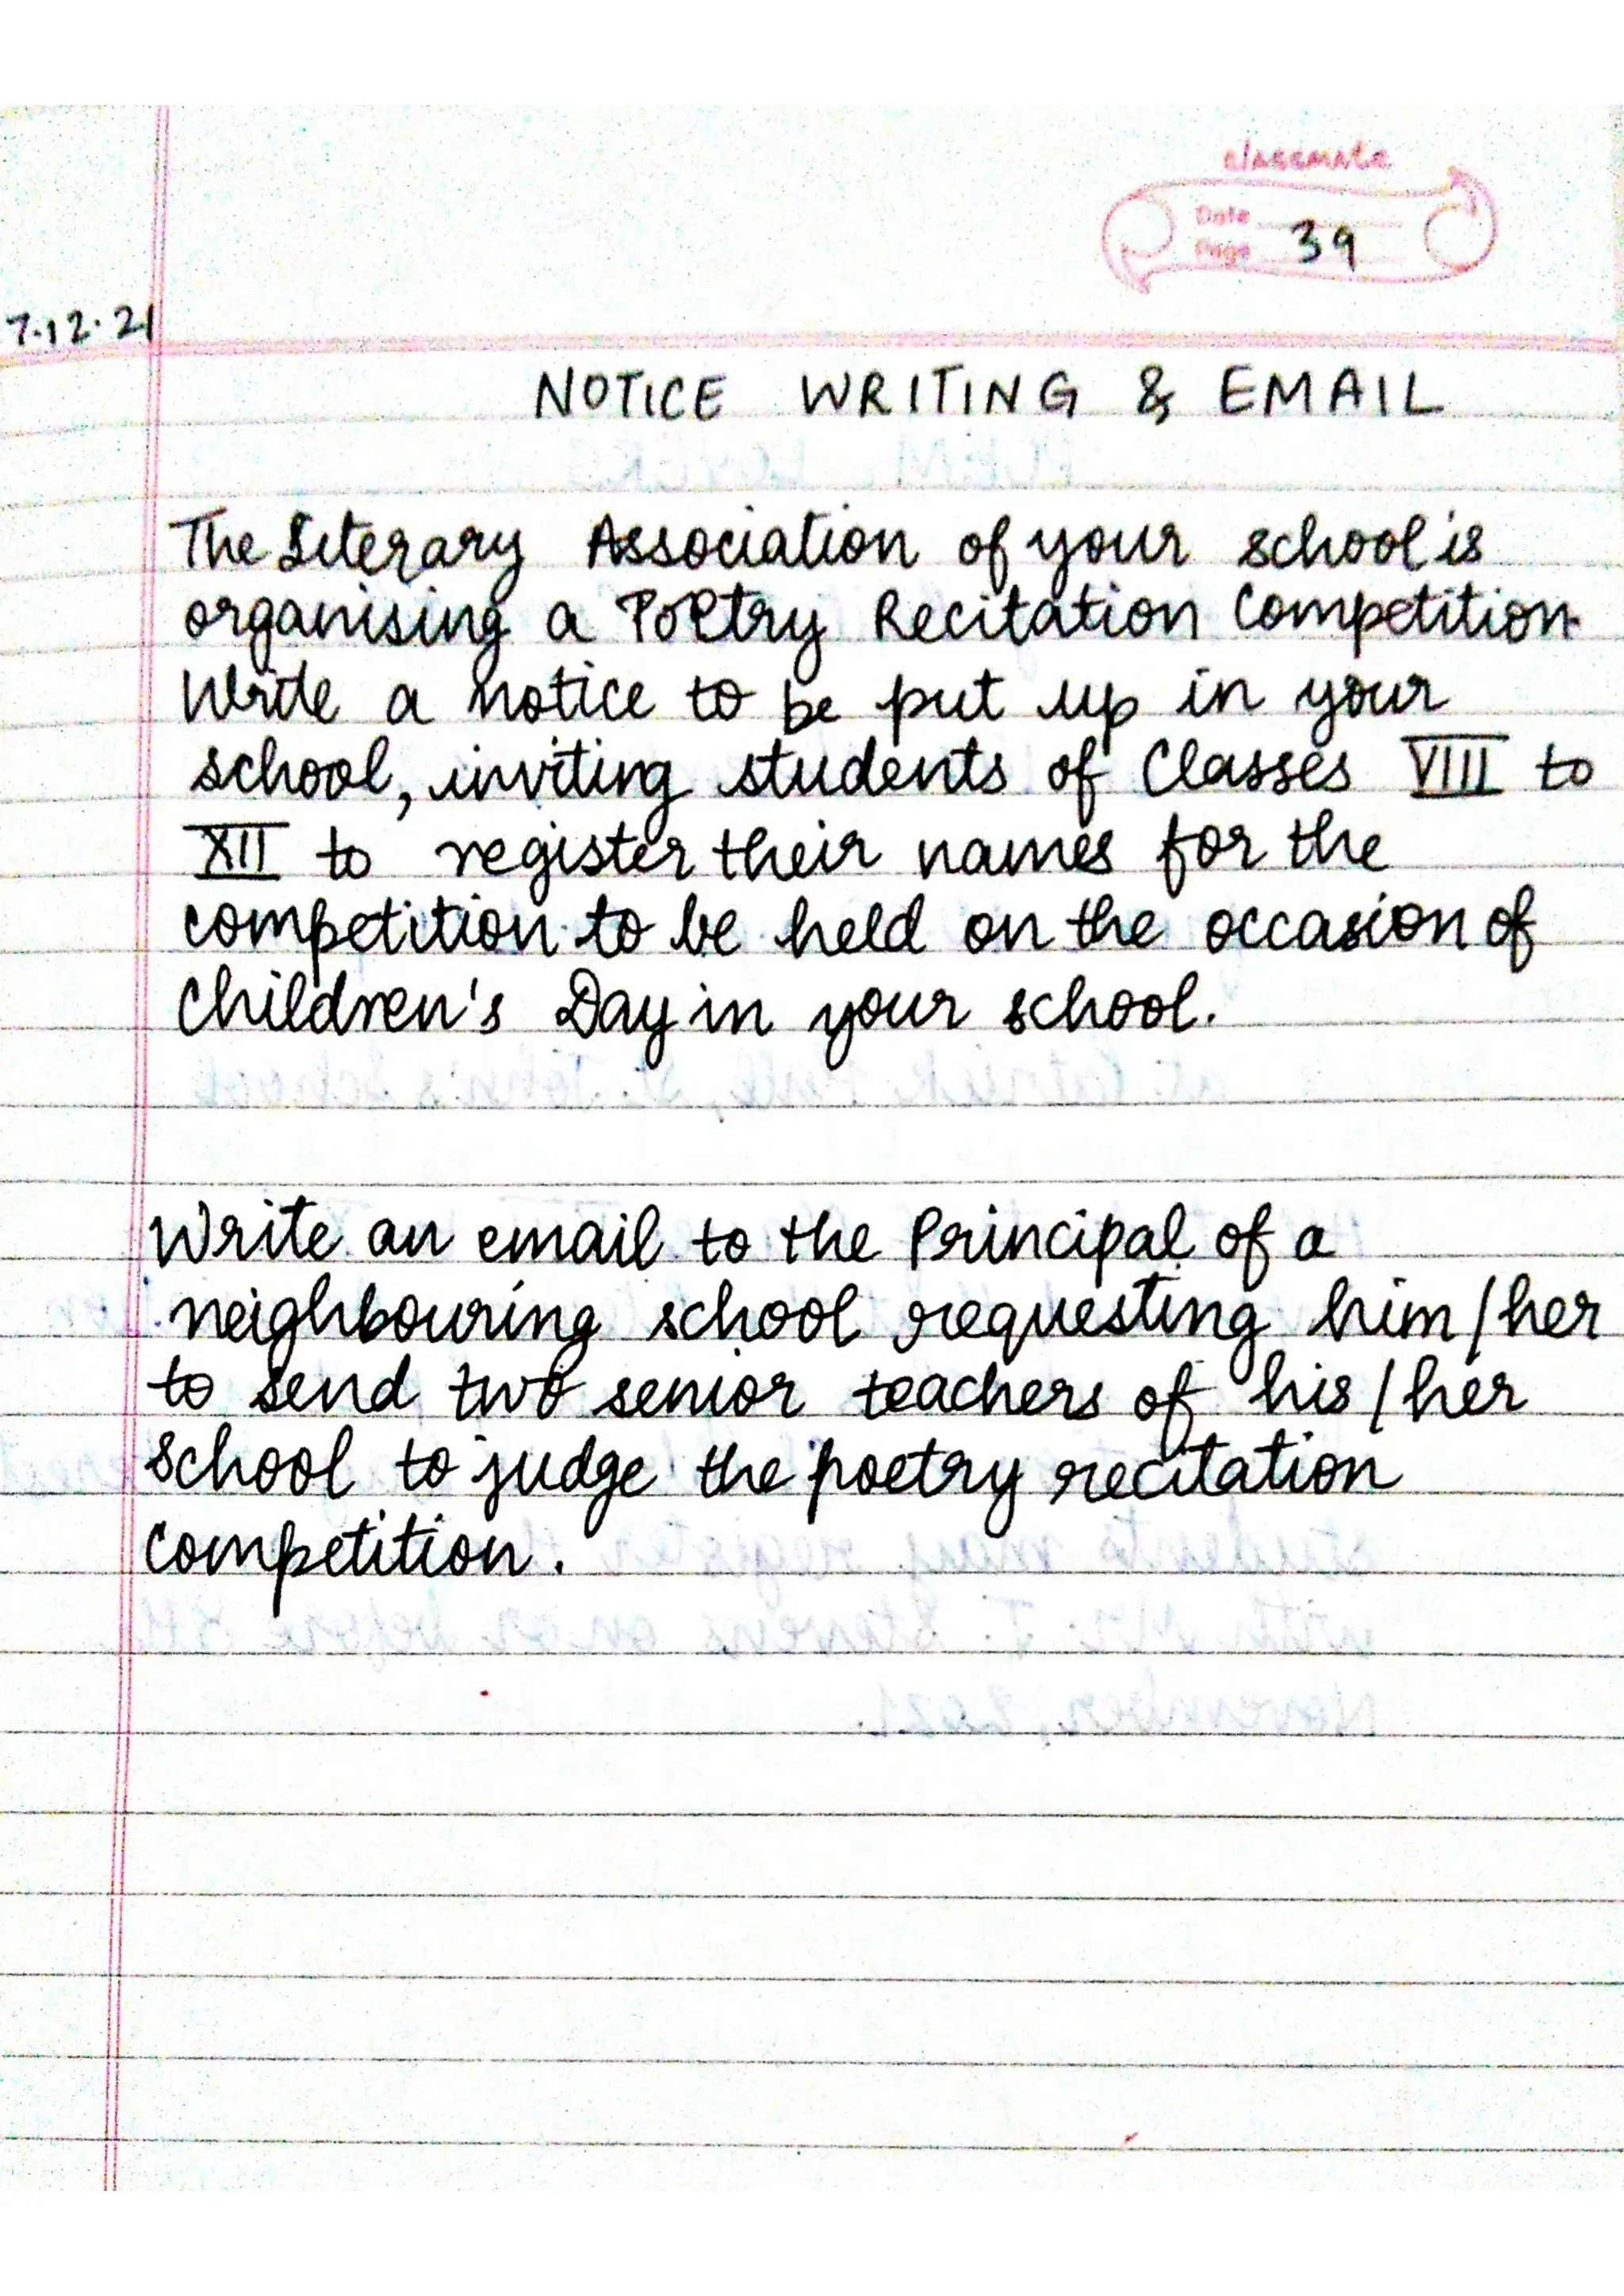 classmate
Date
Page 39
7.12.21
NOTICE WRITING & EMAIL
The Literary Association of your school is
organising a Poetry Recitation Competition.
Write a notice to be put up in your
school, inviting students of Classes VIII to
XII to register their names for the
competition to be held on the occasion of
Children's Day in your school.
Write an email to the Principal of a
neighbouring school requesting him/her
to send two senior teachers of his/her
school to judge the poetry recitation
competition.